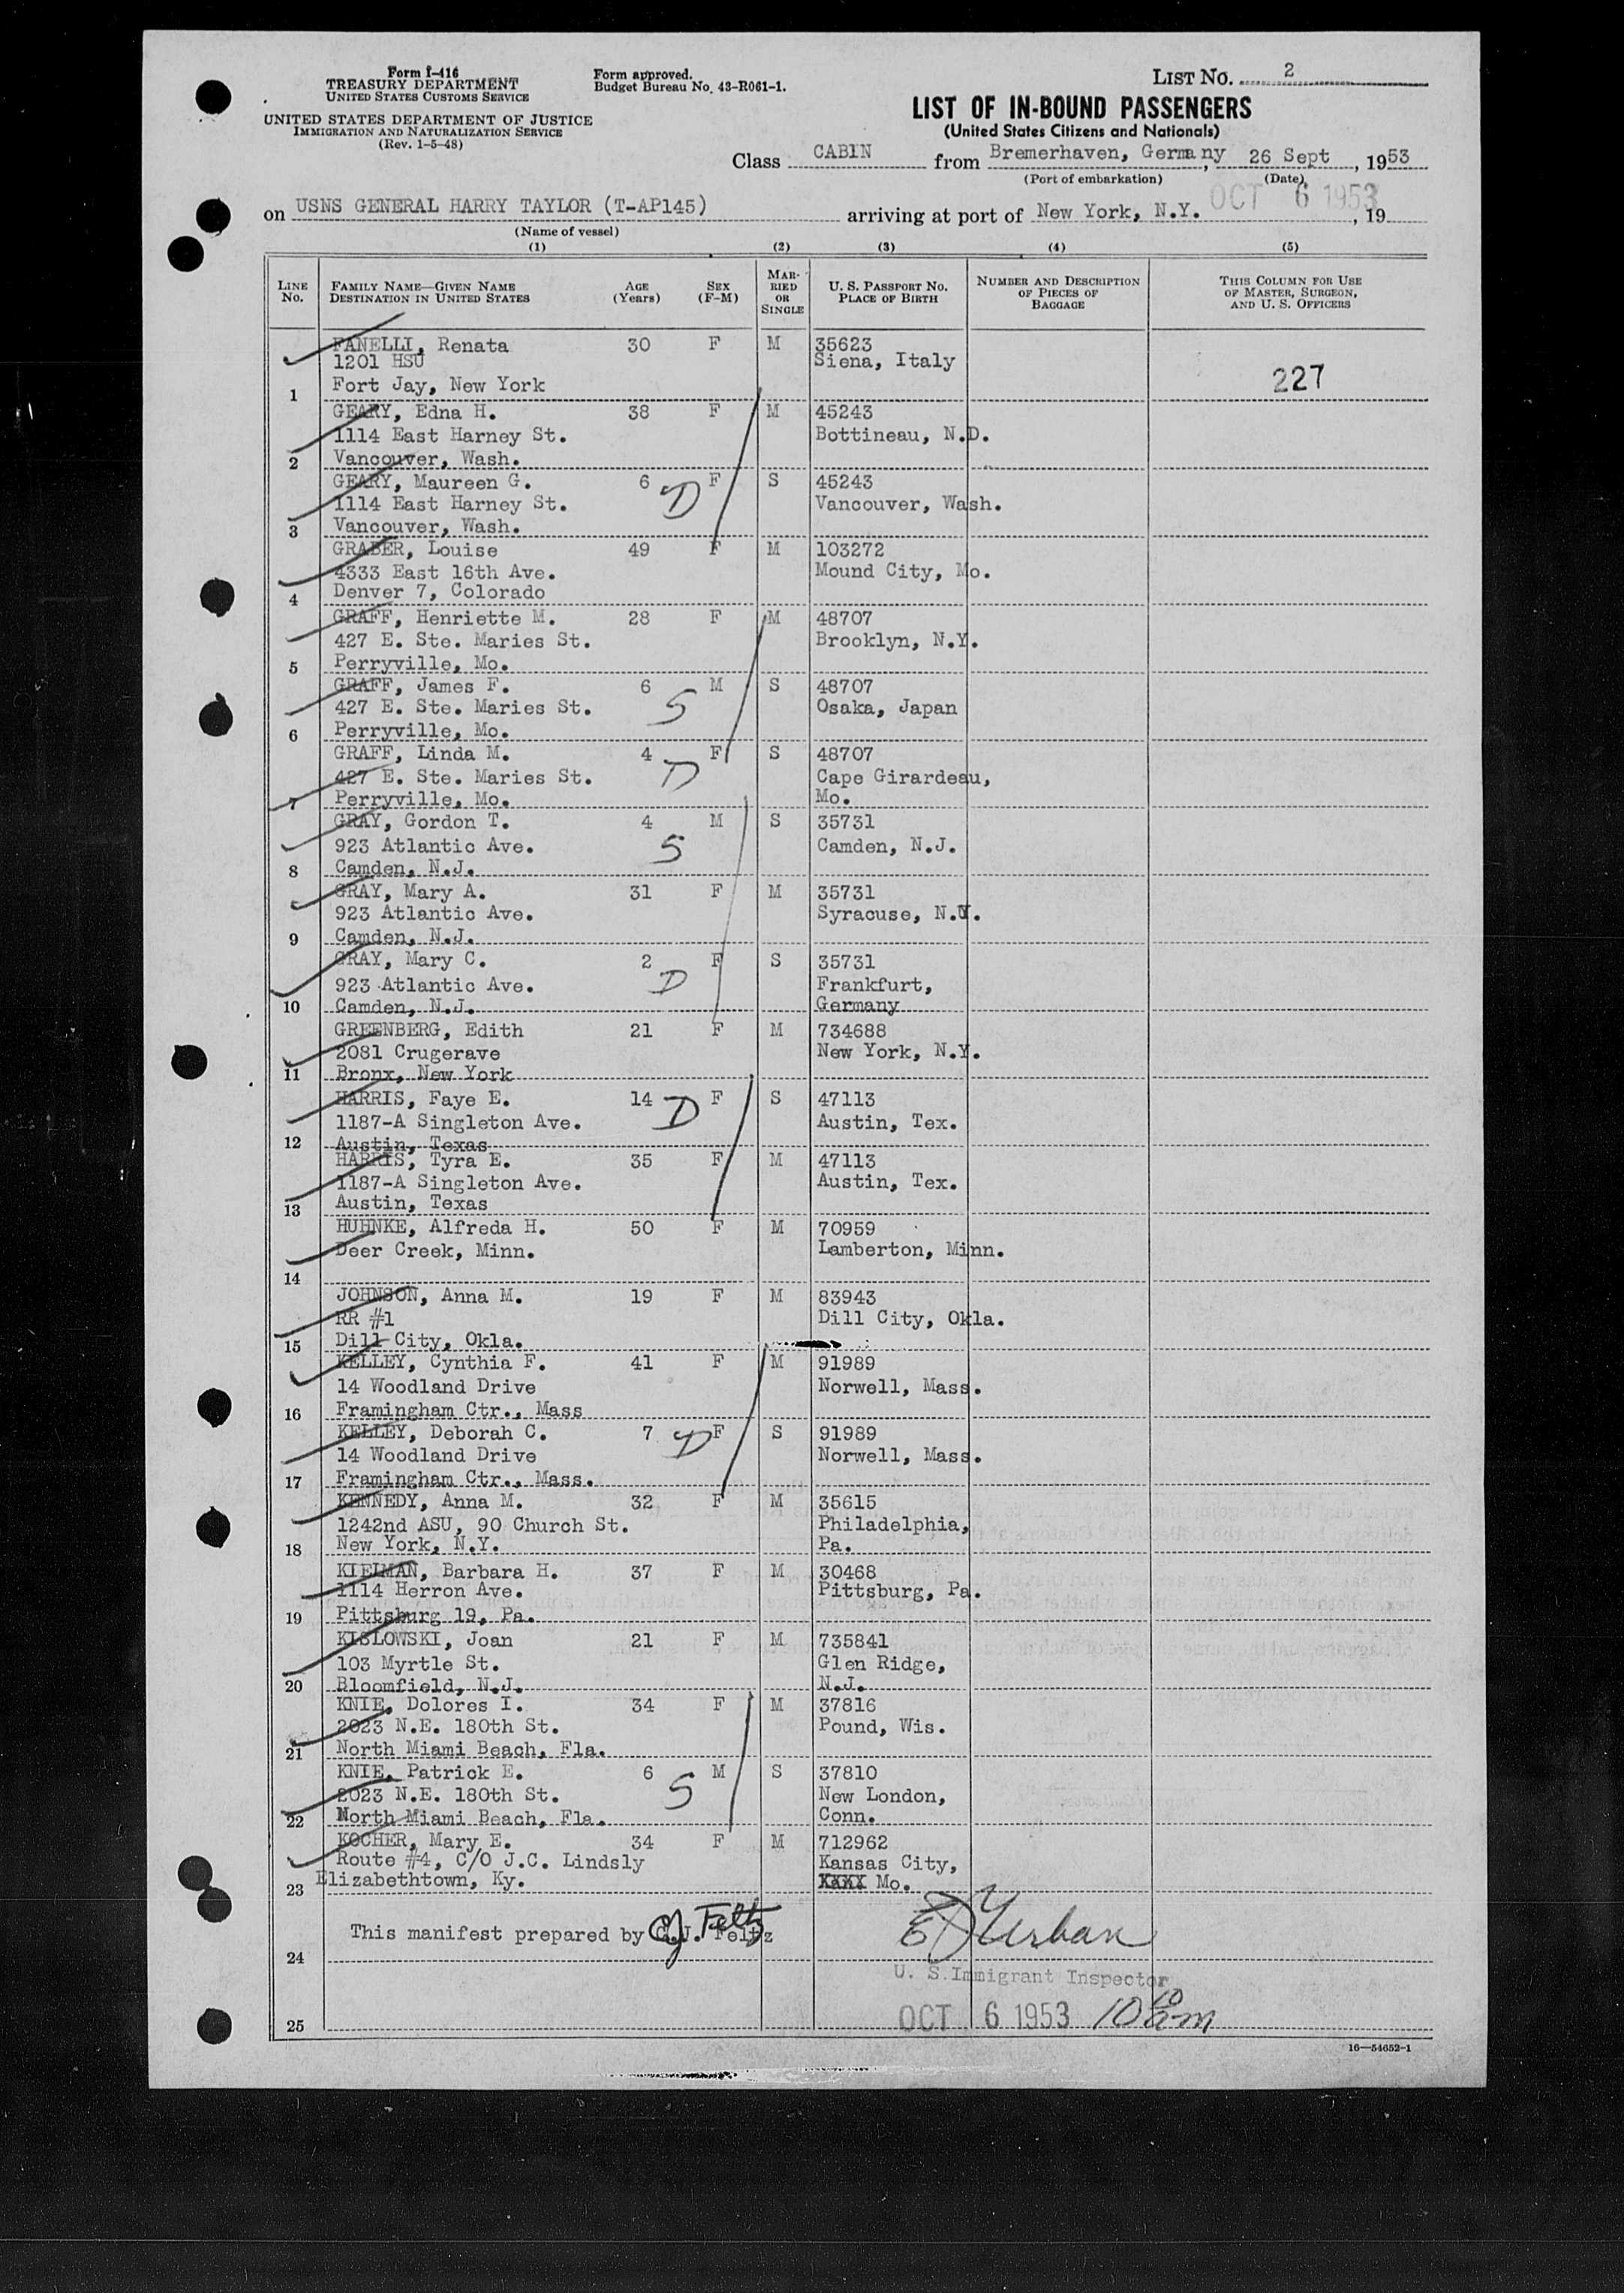 Form I-416
TREASURY DEPARTMENT
UNITED STATES CUSTOMS SERVICE
UNITED STATES DEPARTMENT OF JUSTICE
IMMIGRATION AND NATURALIZATION SERVICE
(Rev. 1-5-48)
Form approved.
Budget Bureau No. 43-R061-1.
LIST NO. 2
LIST OF IN-BOUND PASSENGERS
(United States Citizens and Nationals)
Class CABIN from Bremerhaven, Germany, 26 Sept, 1953
(Port of embarkation) (Date)
on USNS GENERAL HARRY TAYLOR (T-AP145) arriving at port of New York, N.Y. OCT 6 1953, 19
(Name of vessel)
(1) (2) (3) (4) (5)
LINE NO. FAMILY NAME—GIVEN NAME DESTINATION IN UNITED STATES AGE (Years) SEX (F-M) MARRIED OR SINGLE U. S. PASSPORT NO. PLACE OF BIRTH NUMBER AND DESCRIPTION OF PIECES OF BAGGAGE THIS COLUMN FOR USE OF MASTER, SURGEON, AND U. S. OFFICERS
FANELLI, Renata 30 F M 35623
1201 HSU Siena, Italy
1 Fort Jay, New York 227
GEARY, Edna H. 38 F M 45243
1114 East Harney St. Bottineau, N.D.
2 Vancouver, Wash.
GEARY, Maureen G. 6 D F S 45243
1114 East Harney St. Vancouver, Wash.
3 Vancouver, Wash.
GRABER, Louise 49 F M 103272
4333 East 16th Ave. Mound City, Mo.
4 Denver 7, Colorado
GRAFF, Henriette M. 28 F M 48707
427 E. Ste. Maries St. Brooklyn, N.Y.
5 Perryville, Mo.
GRAFF, James F. 6 S M S 48707
427 E. Ste. Maries St. Osaka, Japan
6 Perryville, Mo.
GRAFF, Linda M. 4 D F S 48707
427 E. Ste. Maries St. Cape Girardeau,
7 Perryville, Mo. Mo.
GRAY, Gordon T. 4 S M S 35731
923 Atlantic Ave. Camden, N.J.
8 Camden, N.J.
GRAY, Mary A. 31 F M 35731
923 Atlantic Ave. Syracuse, N.Y.
9 Camden, N.J.
GRAY, Mary C. 2 D F S 35731
923 Atlantic Ave. Frankfurt,
10 Camden, N.J. Germany
GREENBERG, Edith 21 F M 734688
2081 Crugerave New York, N.Y.
11 Bronx, New York
HARRIS, Faye E. 14 D F S 47113
1187-A Singleton Ave. Austin, Tex.
12 Austin, Texas
HARRIS, Tyra E. 35 F M 47113
1187-A Singleton Ave. Austin, Tex.
13 Austin, Texas
HUHNKE, Alfreda H. 50 F M 70959
Deer Creek, Minn. Lamberton, Minn.
14
JOHNSON, Anna M. 19 F M 83943
RR #1 Dill City, Okla.
15 Dill City, Okla.
KELLEY, Cynthia F. 41 F M 91989
14 Woodland Drive Norwell, Mass.
16 Framingham Ctr., Mass
KELLEY, Deborah C. 7 D F S 91989
14 Woodland Drive Norwell, Mass.
17 Framingham Ctr., Mass.
KENNEDY, Anna M. 32 F M 35615
1242nd ASU, 90 Church St. Philadelphia,
18 New York, N.Y. Pa.
KIELMAN, Barbara H. 37 F M 30468
1114 Herron Ave. Pittsburg, Pa.
19 Pittsburg 19, Pa.
KISLOWSKI, Joan 21 F M 735841
103 Myrtle St. Glen Ridge,
20 Bloomfield, N.J. N.J.
KNIE, Dolores I. 34 F M 37816
2023 N.E. 180th St. Pound, Wis.
21 North Miami Beach, Fla.
KNIE, Patrick E. 6 S M S 37810
2023 N.E. 180th St. New London,
22 North Miami Beach, Fla. Conn.
KOCHER, Mary E. 34 F M 712962
Route #4, C/O J.C. Lindsly Kansas City,
23 Elizabethtown, Ky. XXXX Mo.
This manifest prepared by C.J. Feltz CJ Feltz
Urban
24
U. S. Immigrant Inspector
25 OCT 6 1953 10 10 am
16—54652-1